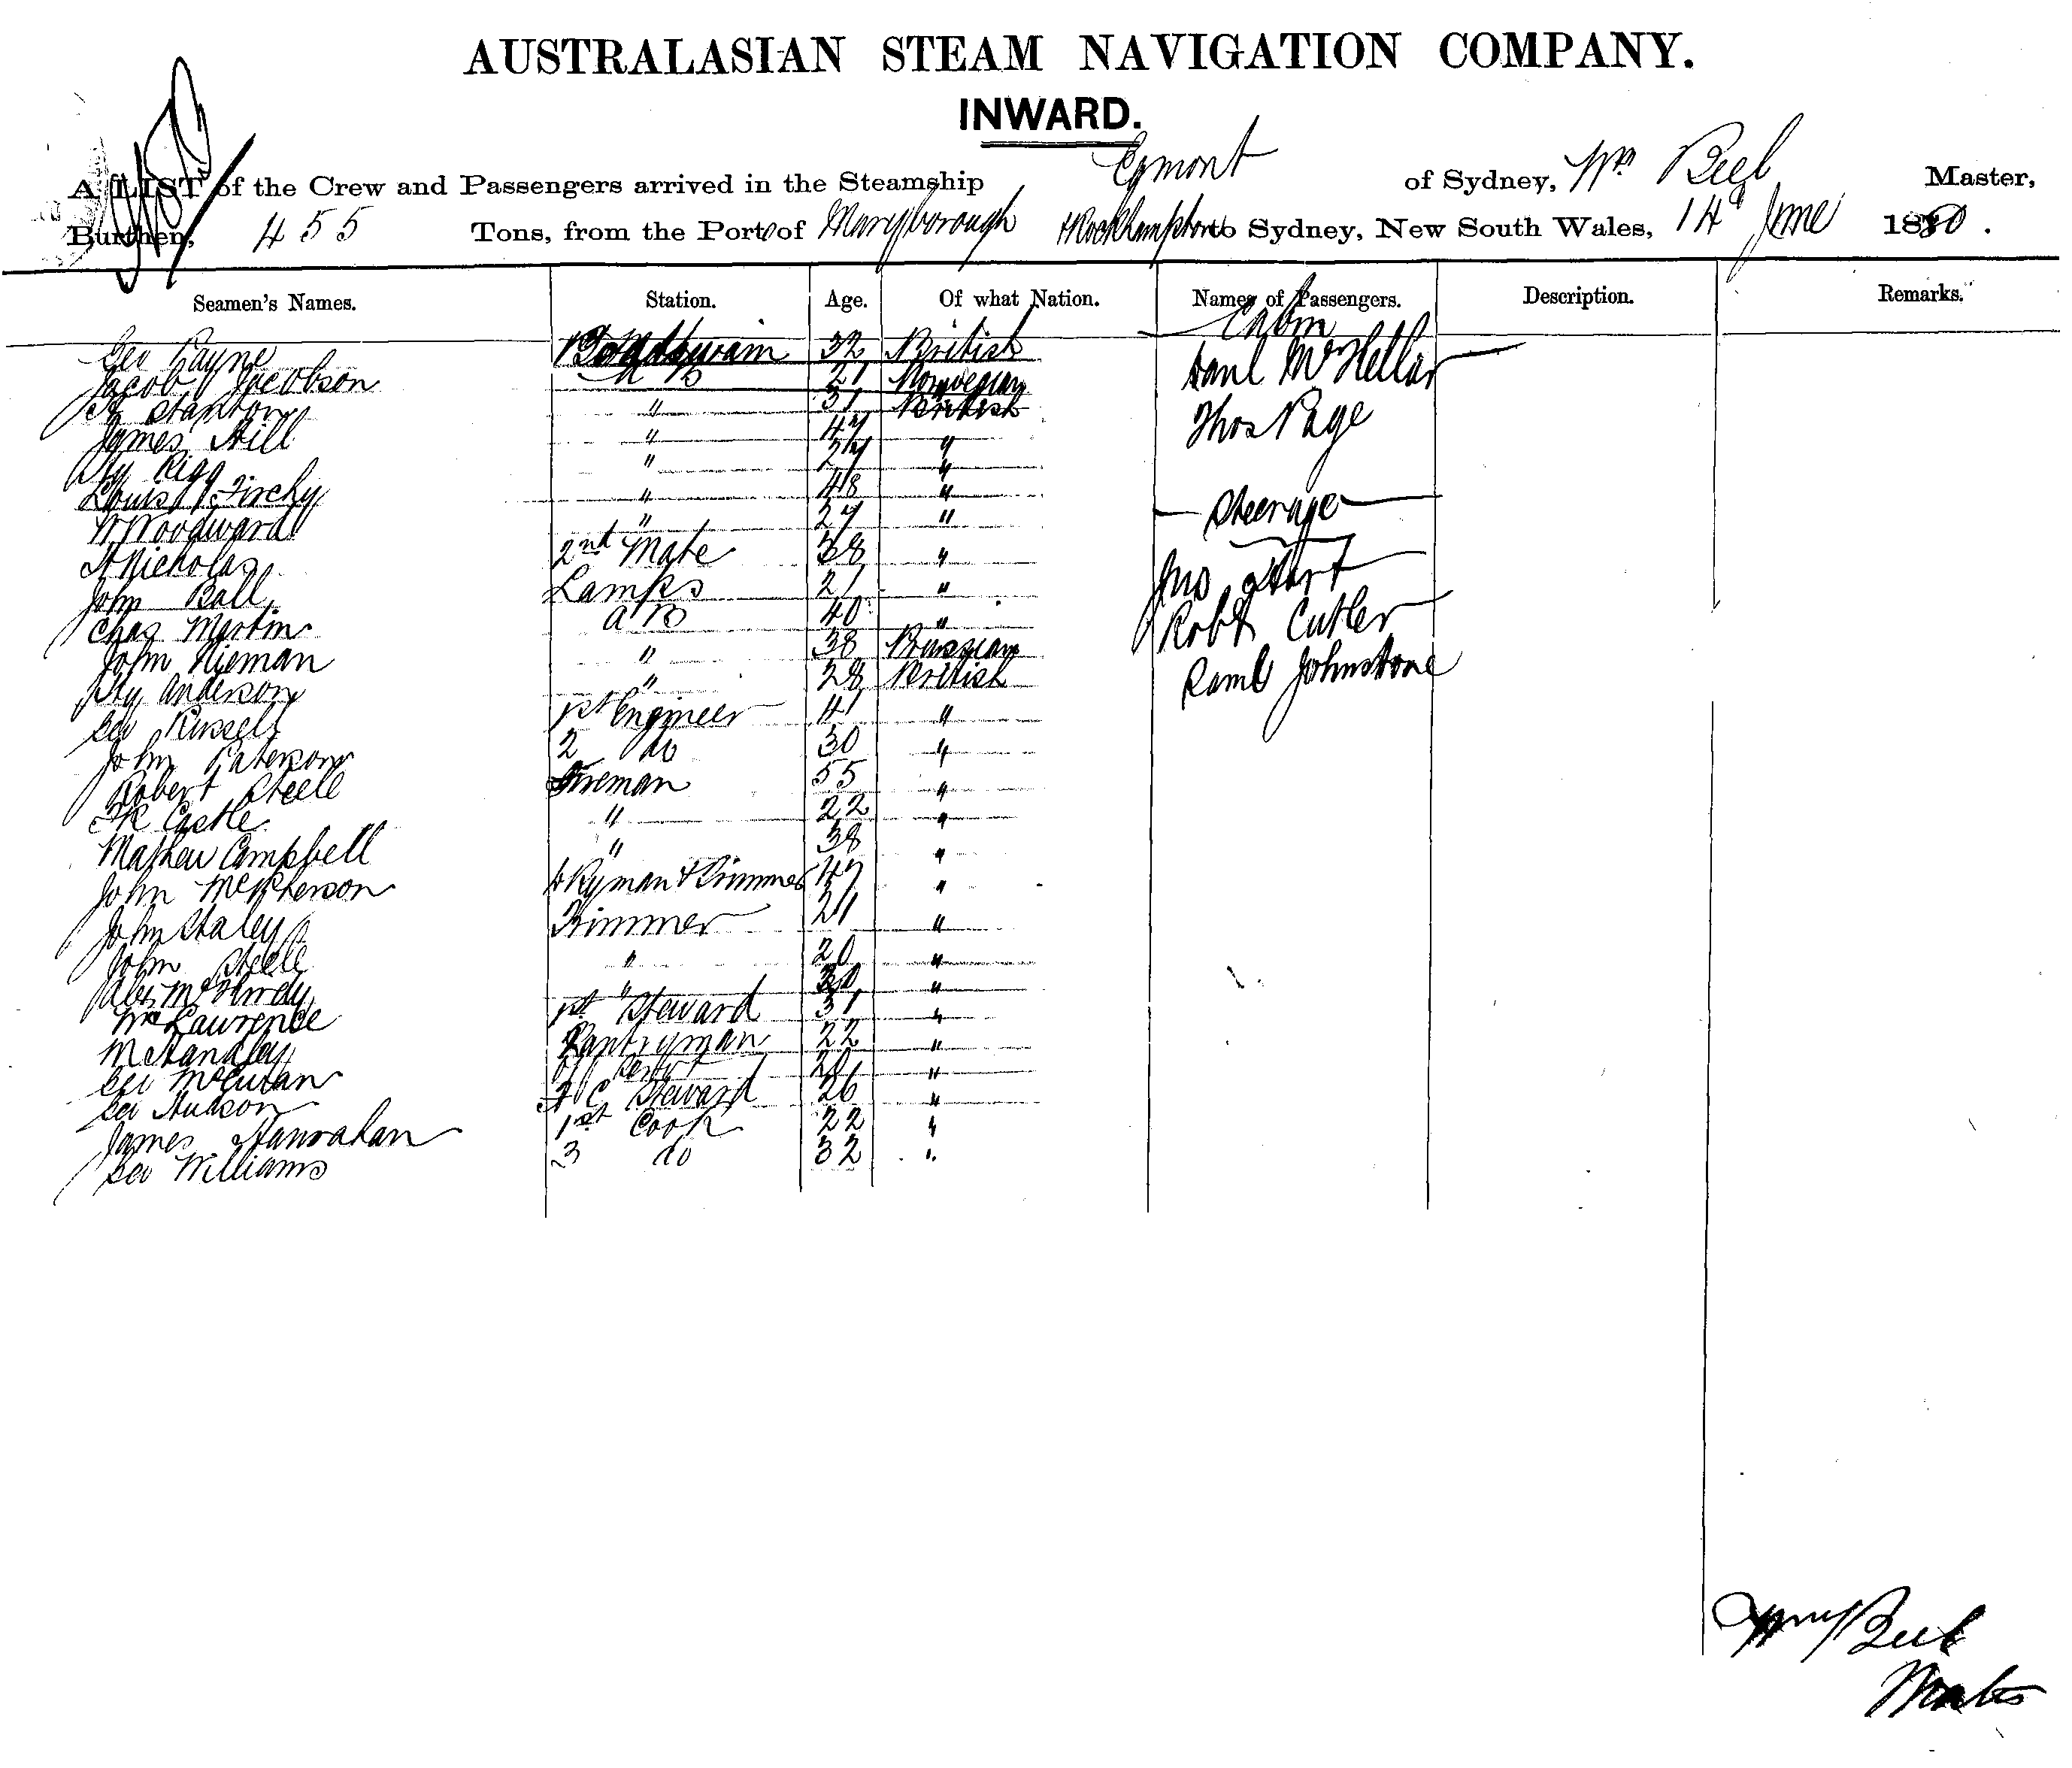 AUSTRALASIAN STEAM NAVIGATION COMPANY.
INWARD.
A LIST of the Crew and Passengers arrived in the Steamship Egmont of Sydney, Wm Beel Master,
Burthen, 455 Tons, from the Port of Maryborough & Rockhampton to Sydney, New South Wales, 14 June 1880.
Seamen's Names. Station. Age. Of what Nation. Names of Passengers. Description. Remarks.
Cabin
Geo Payne Boatswain 32 British
Danl McKellar
Jacob Jacobson A B 21 Norwegian
Stanton " 31 British
Thos Page
James Hill " 47 "
Hy Rigg " 27 "
Louis " 48 "
Steerage
W Woodward " 27 "
H Nicholas 2nd Mate 38 "
Jno Hart
John Ball Lamps 21 "
Chas Martin A B 40 "
Robt Cutler
John Nieman " 38 Prussian
Saml Johnstone
Hy Anderson " 28 British
Geo Russell 1st Engineer 41 "
John Paterson 2 do 30 "
Robert Steele Fireman 55 "
Castle " 22 "
Mathew Campbell " 38 "
John McPherson & Trimmer 47 "
John Staley Trimmer 21 "
John Steele " 20 "
Alex " "
Wm Lawrence 1st Steward 31 "
M Handley Pantryman 22 "
Geo McEwan "
Geo Hudson F C Steward 26 "
James Hanrahan 1st Cook 22 "
Geo Williams 3 do 32 "
Beel
Master